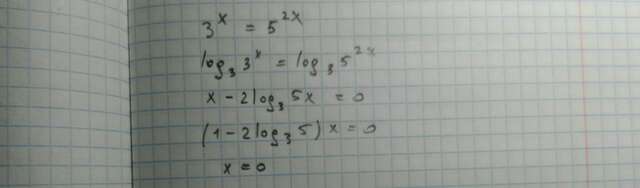 3^x = 5^{2x}
log_3 3^x = log_3 5^{2x}
x - 2 log_3 5x = 0
(1 - 2 log_3 5) x = 0
x = 0